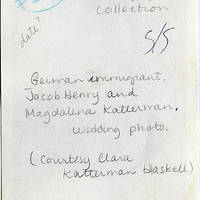 Collection
date?
5/5
German immigrant.
Jacob Henry and
Magdalena Katterman.
wedding photo.
(Courtesy Clara
Katterman Haskell)